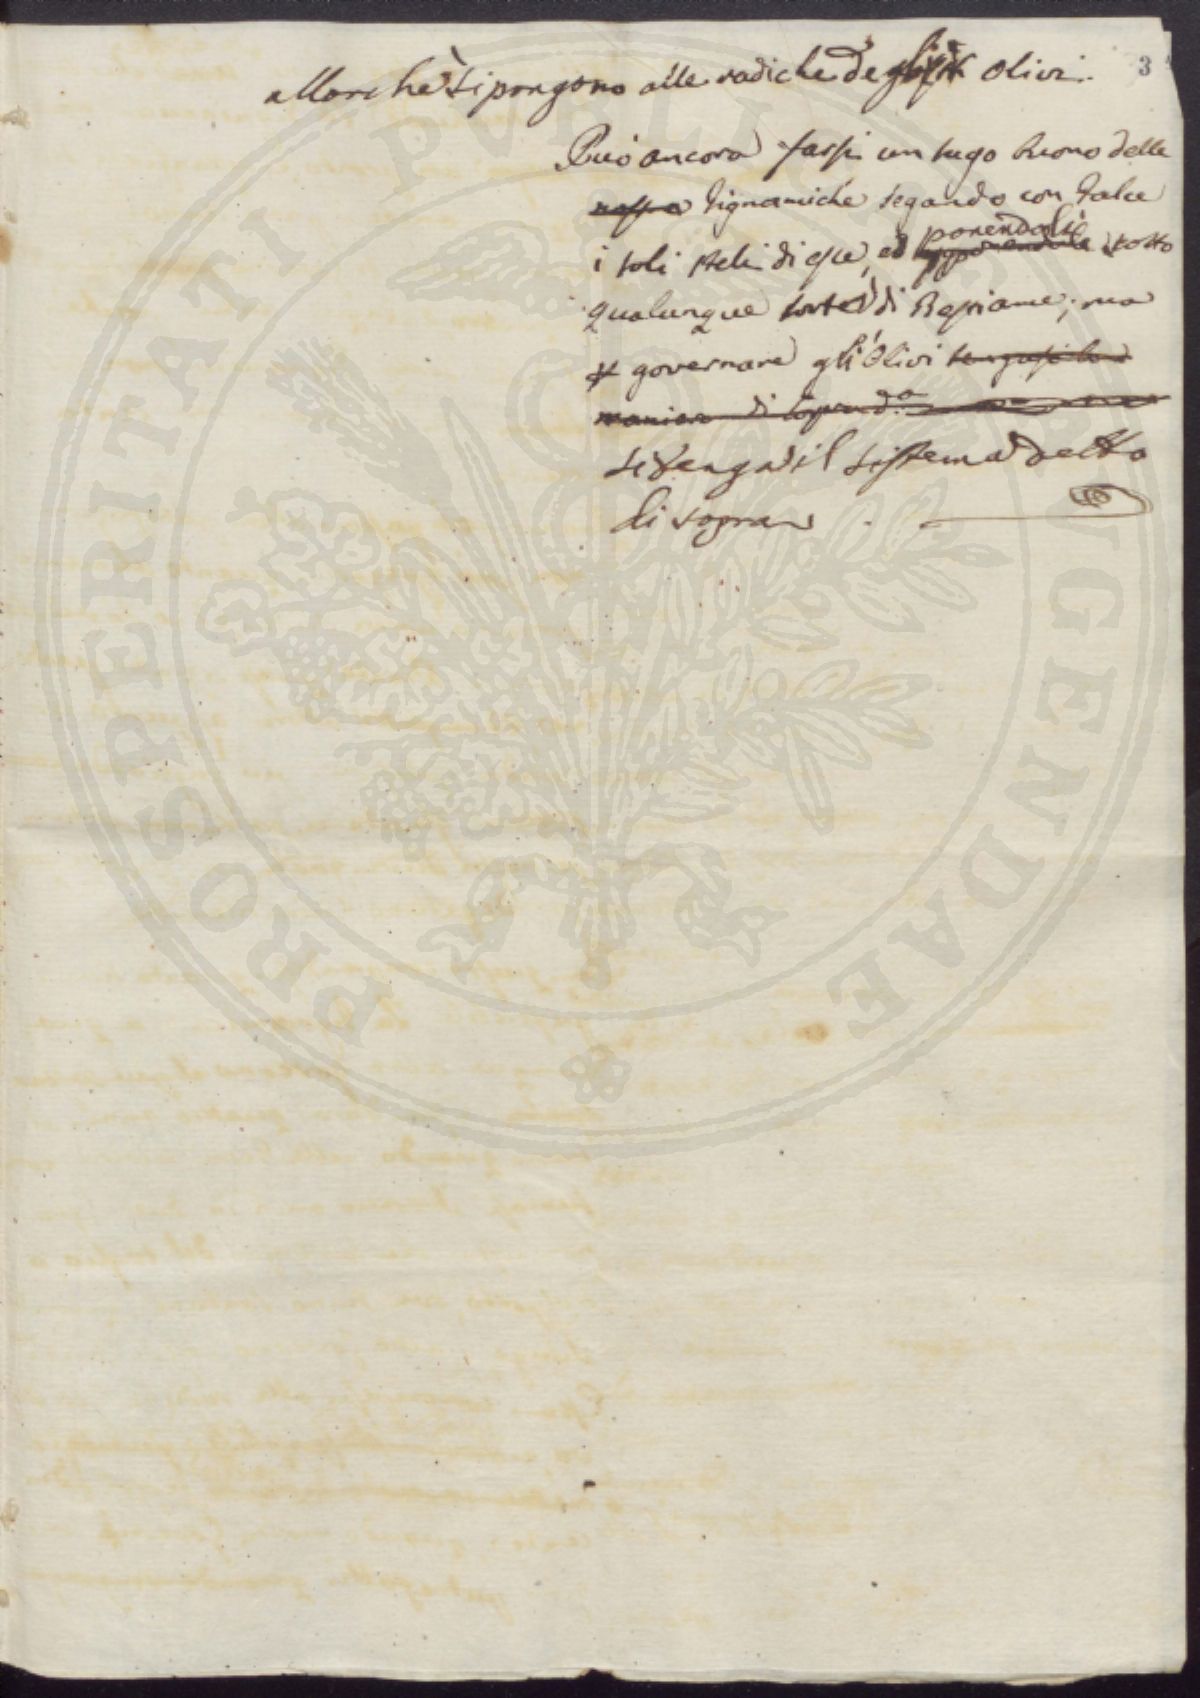 3
allorchè si pongono alle radiche degli olivi.
Può ancora farsi un sugo buono delle
lignamiche segando con falce
i soli steli di esse, ed ponendoli sotto
qualunque sorte di Bestiame; ma
governare gli Olivi tengasi la
maniera di sopra da
si tenga il sistema detto
di sopra
PROSPERITATI PUBLICAE AUGENDAE